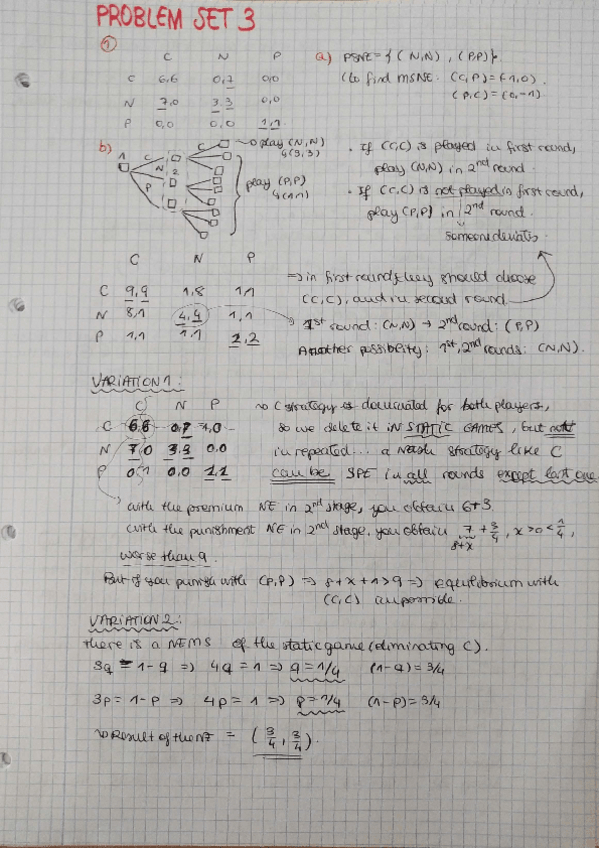 PROBLEM SET 3
1
C N P
C 6,6 0,7 0,0
N 7,0 3,3 0,0
P 0,0 0,0 1,1
a) PSNE = { (N,N) , (P,P)}.
(to find MSNE: (C,P) = (-1,0).
(P,C) = (0,-1).
b) 1 C N P 2 C
→ play (N,N)
↳(3,3)
play (P,P)
↳(1,1)
· If (C,C) is played in first round,
play (N,N) in 2nd round.
· If (C,C) is not played in first round,
play (P,P) in 2nd round.
someone deviates.
C N P
C 9,9 1,8 1,1
N 8,1 4,4 1,1
P 1,1 1,1 2,2
⇒ in first round they should choose
(C,C), and in second round
1st round: (N,N) → 2nd round: (P,P)
Another possibility: 1st, 2nd rounds: (N,N).
VARIATION 1:
C N P
C 6,6 0,7 1,0
N 7,0 3,3 0,0
P 0,1 0,0 1,1
→ C strategy is dominated for both players,
so we delete it IN STATIC GAMES, but not
in repeated... a Nash strategy like C
can be SPE in all rounds except last one
with the premium NE in 2nd stage, you obtain 6+3.
with the punishment NE in 2nd stage, you obtain 7 + 3/4, x>0<1/4,
8+x
worse than 9.
But if you punish with (P,P) ⇒ 8+x+1>9 ⇒ equilibrium with
(C,C) impossible.
VARIATION 2:
there is a NEMS of the static game (eliminating C).
3q = 1-q ⇒ 4q = 1 ⇒ q = 1/4 (1-q) = 3/4
3p = 1-p ⇒ 4p = 1 ⇒ p = 1/4 (1-p) = 3/4
→ Result of the NE = (3/4, 3/4).